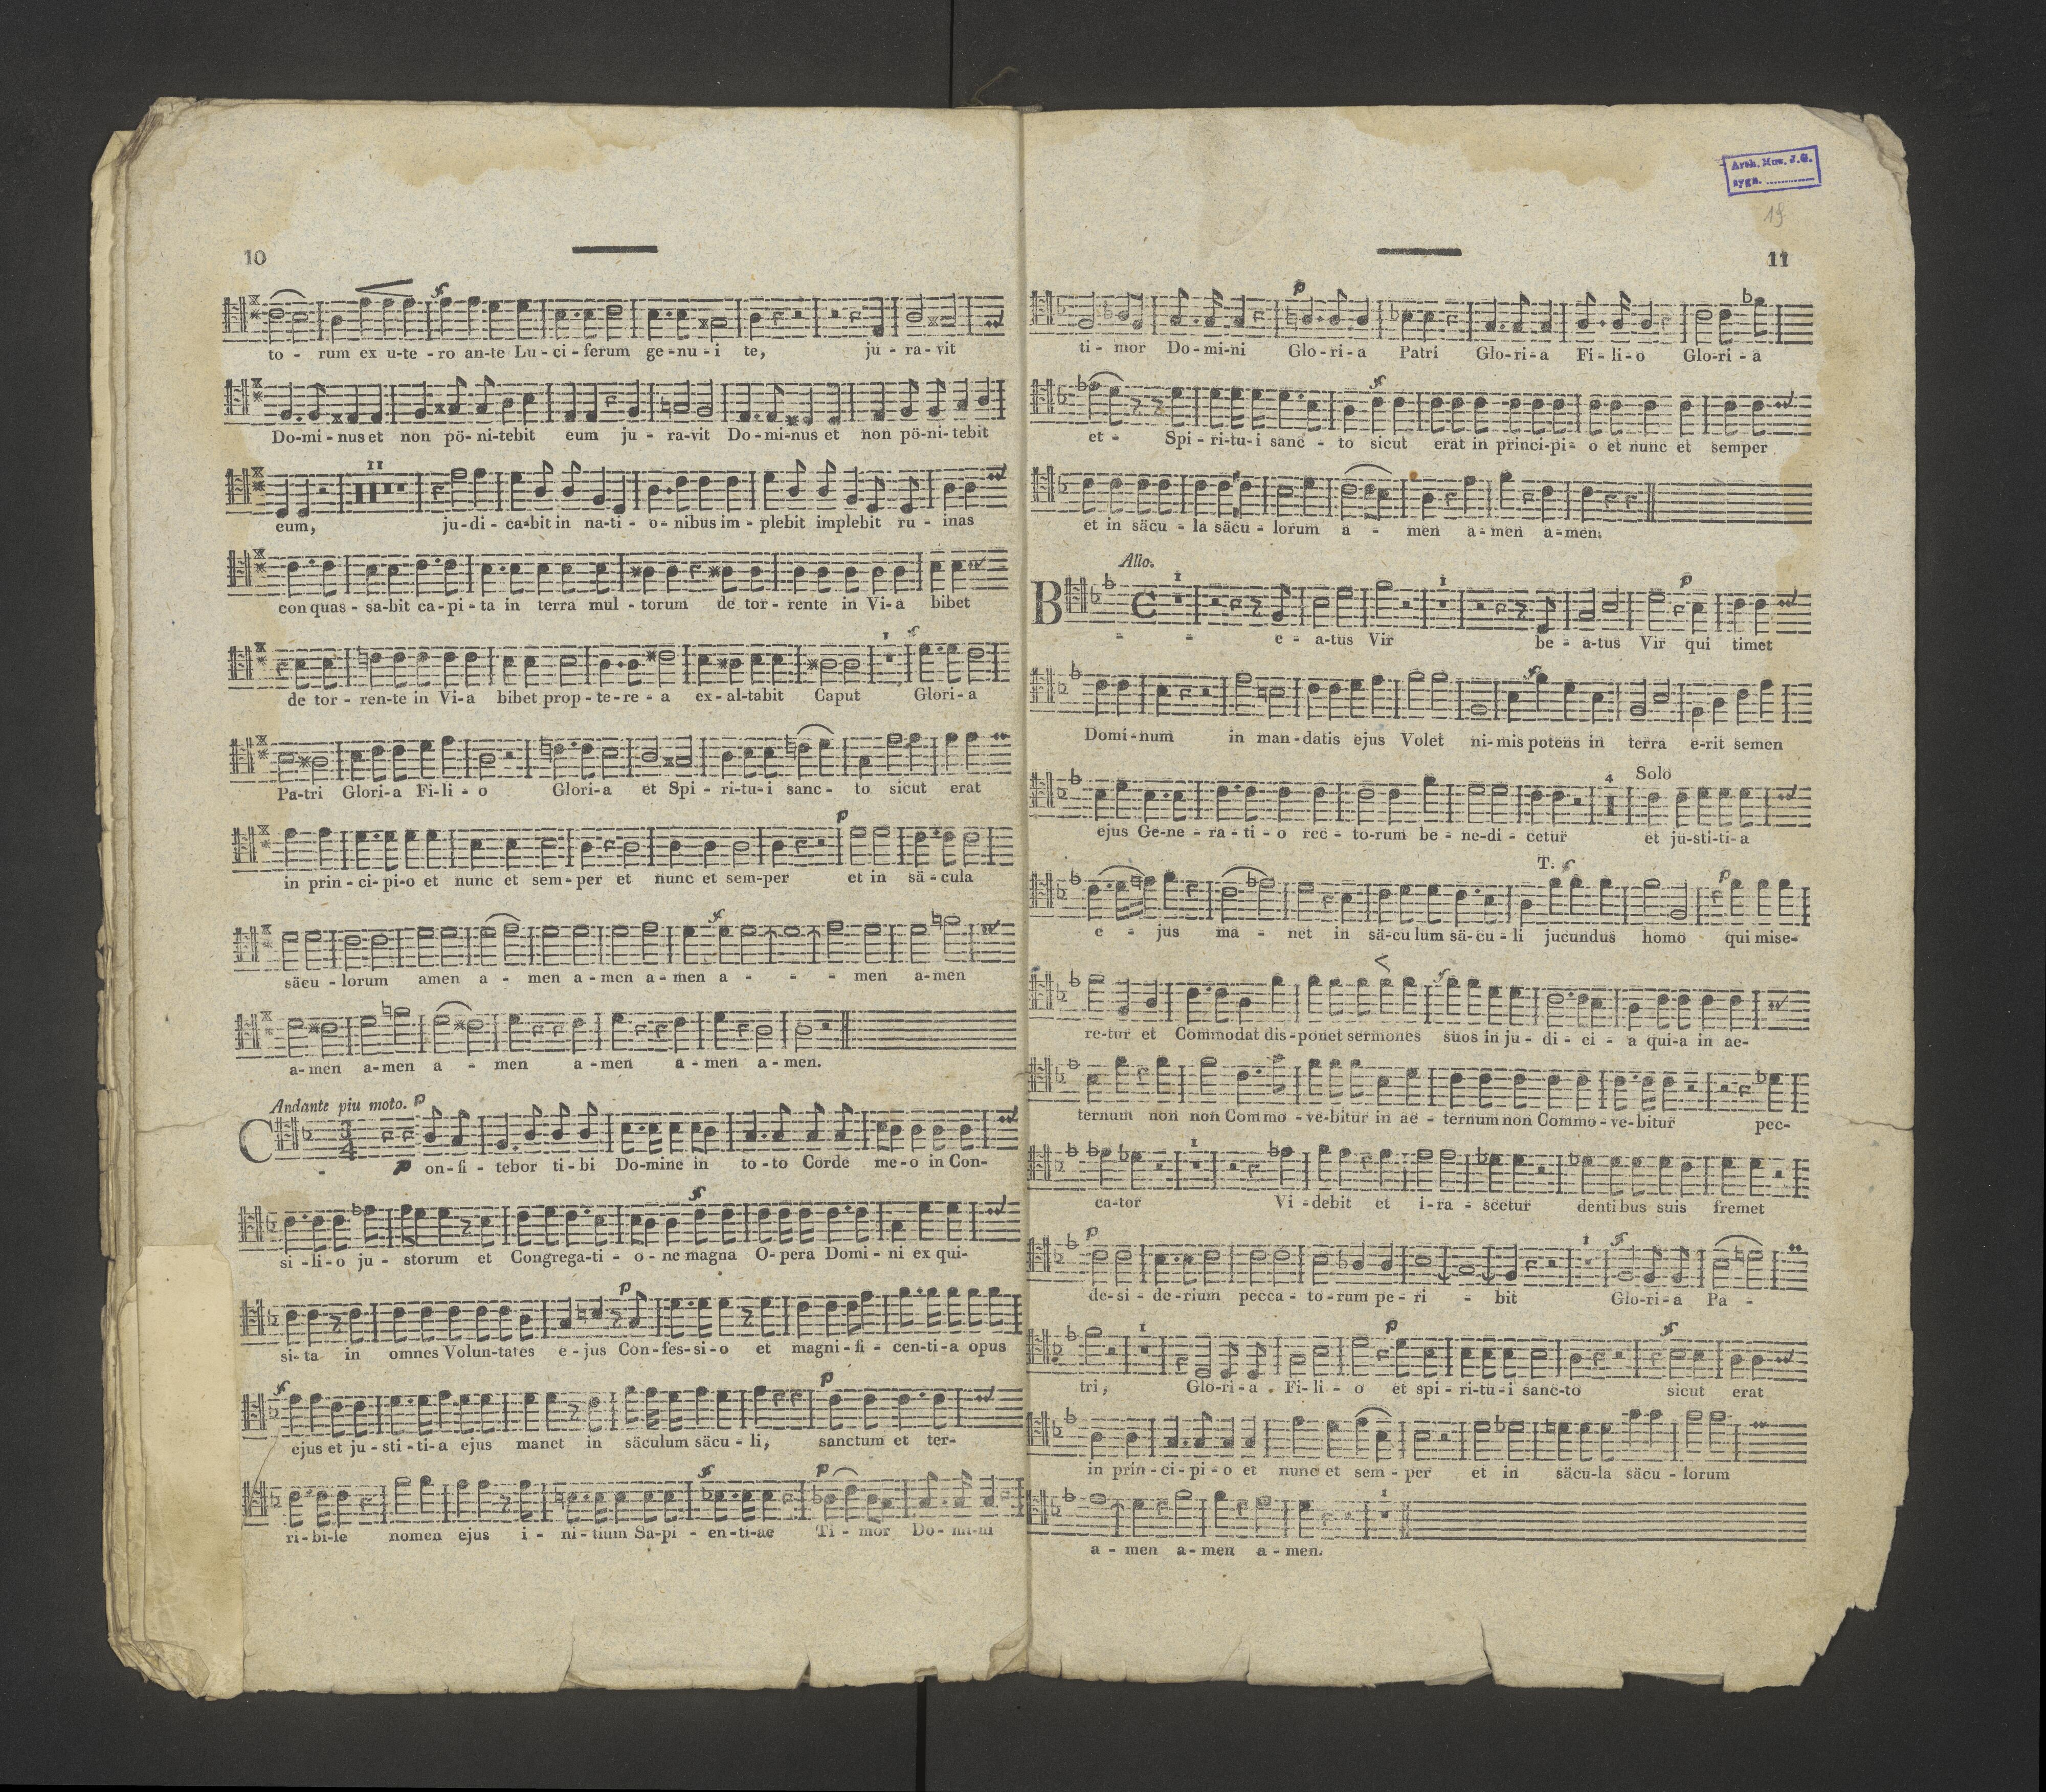 10
to - rum ex u-te - ro an-te Lu - ci - ferum ge - nu - i te, ju - ra - vit
Do-mi-nus et non pö-ni-tebit eum ju - ra-vit Do-mi-nus et non pö-ni-tebit
11
eum, ju - di - ca-bit in na-ti - o-nibus im - plebit implebit ru - inas
con quas - sa-bit ca - pi - ta in terra mul - torum de tor - rente in Vi-a bibet
1
de tor - ren-te in Vi-a bibet prop - te-re - a ex-al-tabit Caput Glori-a
Pa-tri Glori-a Fi-li - o Glori-a et Spi - ri-tu-i sanc - to sicut erat
p
in prin - ci-pi-o et nunc et sem-per et nunc et sem-per et in sä-cula
säcu - lorum amen a - men a-men a-men a - - - men a-men
a-men a-men a - men a-men a-men a-men.
Andante piu moto. p
C - p on-fi - tebor ti-bi Do-mine in to-to Corde me-o in Con-
si-li-o ju - storum et Congrega-ti - o-ne magna O-pera Domi - ni ex qui-
p
si-ta in omnes Volun-tates e-jus Con-fes-si-o et magni-fi - cen-ti-a opus
p
ejus et ju-sti-ti-a ejus manet in säculum säcu-li, sanctum et ter-
p
ri-bi-le nomen ejus i - ni-tium Sa-pi - en-ti-ae Ti - mor Do-mi-ni
Arch. Muz. J.G.
sygn. ..........
19
11
p
ti - mor Do-mi-ni Glo-ri-a Patri Glo-ri-a Fi-li-o Glo-ri-a
et - Spi-ri-tu-i sanc - to sicut erat in princi-pi - o et nunc et semper
et in säcu - la säcu - lorum a - men a-men a-men.
Allo.
1 1 p
B - - e - a-tus Vir be - a-tus Vir qui timet
Domi-num in man-datis ejus Volet ni-mis potens in terra e-rit semen
4 Solo
ejus Ge-ne - ra-ti-o rec - to-rum be - ne-di - cetur et ju-sti-ti-a
T. p
e - jus ma - net in sä-cu lum sä-cu - li jucundus homo qui mise-
re-tur et Commodat dis-ponet sermones suos in ju - di - ci - a qui-a in ae-
ternum non non Commo - ve-bitur in ae - ternum non Commo - ve-bitur pec-
1
ca-tor Vi-debit et i-ra - scetur denti bus suis fremet
p 1
de-si - de-rium pecca - to-rum pe-ri - bit Glo-ri-a Pa -
1 p
tri, Glo-ri-a Fi-li - o et spi - ri-tu-i sanc-to sicut erat
in prin-ci-pi-o et nunc et sem-per et in säcu-la säcu - lorum
1
a - men a-men a-men.